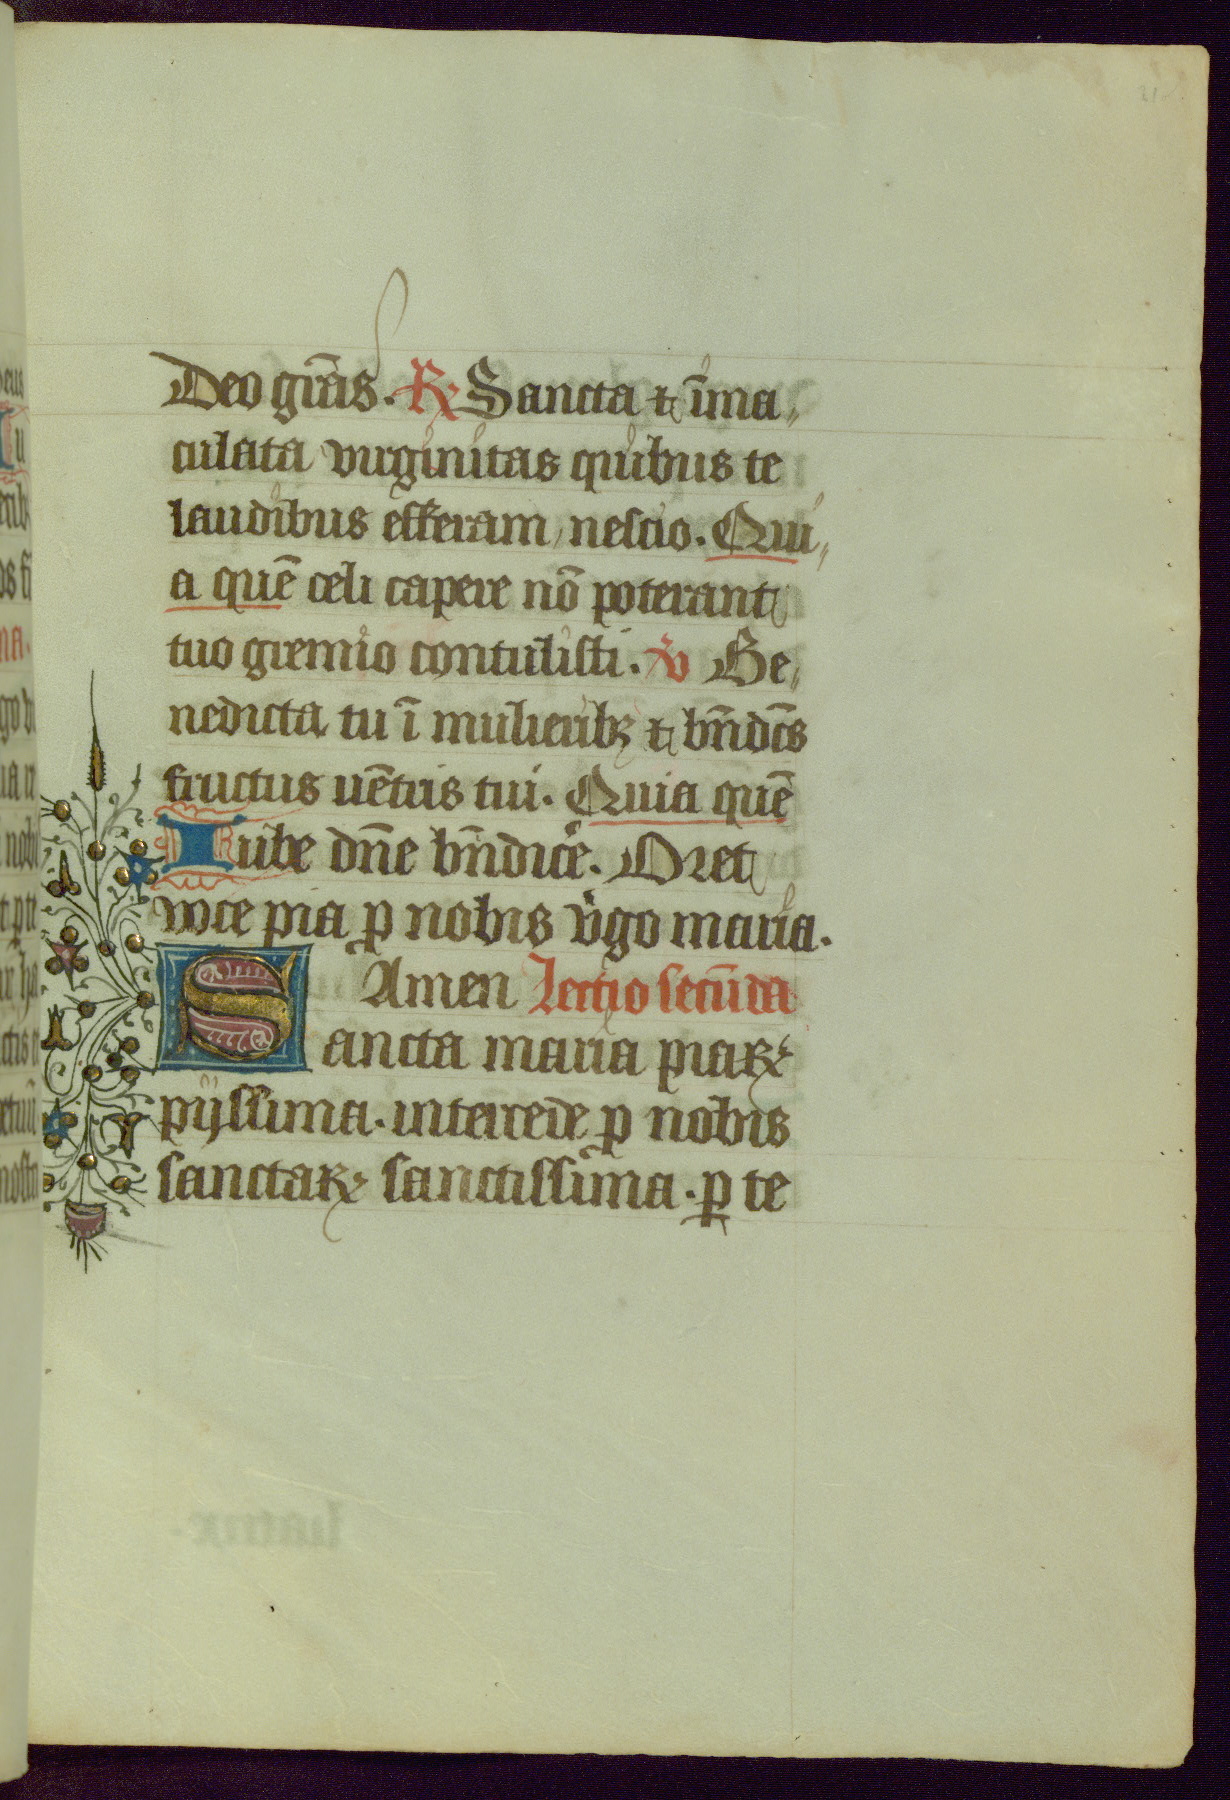 Deo grãs. ℟ Sancta ⁊ ĩma,
culata virginitas quibus te
laudibus efferam, nescio. Qui,
a quē celi capere nō poterant
tuo gremio contulisti. ℣ Be,
nedicta tu ī mulieribꝫ ⁊ bñdcs̄
fructus uētris tui. Quia quē
Iube dñe bñdicē. Oret
voce pia ꝑ nobis v̄go maria.
Amen Lectio secūda
Sancta maria piaꝝ
pijssima. intercede ꝑ nobis
sanctaꝝ sanctissima. ꝑ te